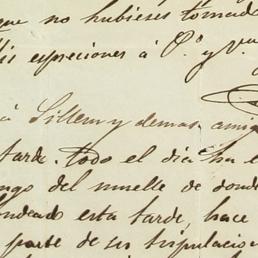 que no hubieses tomado
is espreciones á P.ª y Vu
á Sillem y demas amig
tarde. Todo el dia ha e
ngo del muelle de donde
ondeado esta tarde, hace
parte de su tripulacion